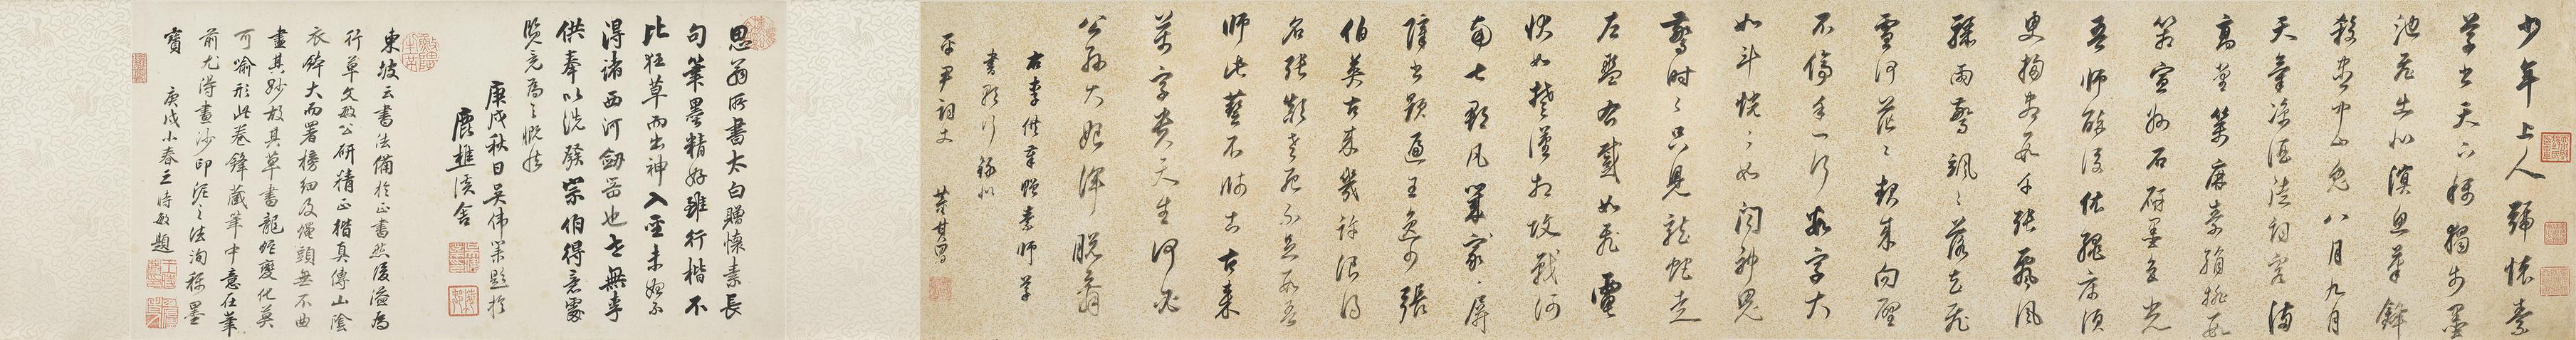 少年上人號懷素
草書天下稱獨步墨
池飛出北溟魚筆鋒
殺盡中山兔八月九月
天氣凉酒徒詞客滿
高堂箋麻素絹排數
箱宣州石硯墨色光
吾師醉後倚繩床須
臾掃盡數千張飄風
驟雨驚颯々落花飛
雪何茫々起來向壁
不停手一行數字大
如斗恍々如聞神鬼
驚時々只見龍蛇走
左盤右蹙如飛電
狀如楚漢相攻戰河
南七郡凡幾家々屏
障書題遍王逸少張
伯英古來幾許浪得
名張顛老死不足數吾
師此藝不師古古來
萬字貴天生何必
公孫大娘渾脫舞
右李供奉贈素師草
書歌行錄似
平尹詞丈 董其昌
思翁所書太白贈懷素長
句筆墨精好雖行楷不
比狂草而出神入聖未始不
得諸西河劍器也世無李
供奉以洗發宗伯得意處
覽竟為之慨然
庚戌秋日吳偉業題於
鹿樵溪舍
東坡云書法備於正書然後溢為
行草文敏公研精正楷真傳山陰
衣鉢大而署榜細及蠅頭無不曲
盡其妙故其草書龍蛇變化莫
可喻形此卷鋒藏筆中意在筆
前尤得畫沙印泥之法洵稱墨
寶 庚戌小春王時敏題